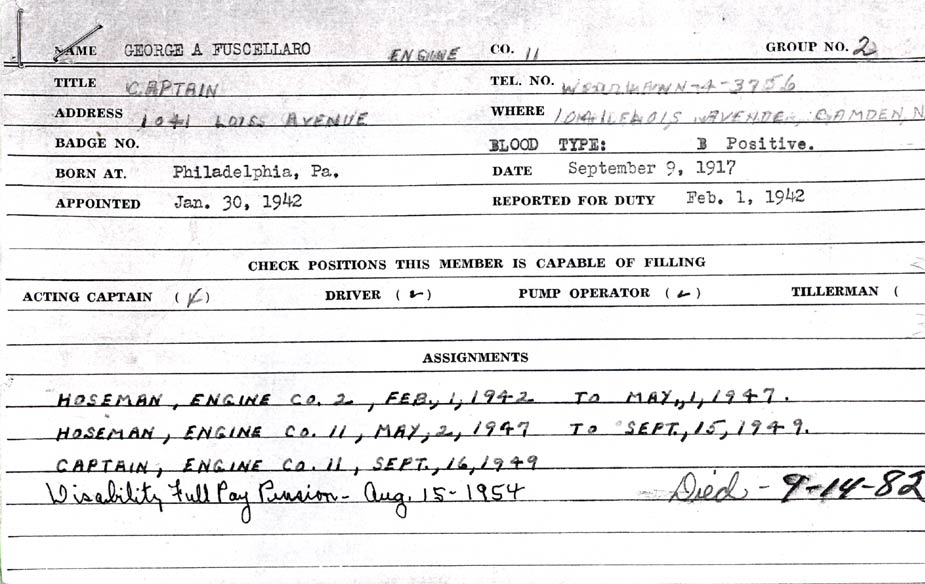 NAME GEORGE A FUSCELLARO ENGINE CO. 11 GROUP NO. 2
TITLE CAPTAIN TEL. NO. WOODLAWN-4-3756
ADDRESS 1041 LOIS AVENUE WHERE AVENUE, CAMDEN, N
BADGE NO. BLOOD TYPE: B Positive.
BORN AT. Philadelphia, Pa. DATE September 9, 1917
APPOINTED Jan. 30, 1942 REPORTED FOR DUTY Feb. 1, 1942
CHECK POSITIONS THIS MEMBER IS CAPABLE OF FILLING
ACTING CAPTAIN (✓) DRIVER (✓) PUMP OPERATOR (✓) TILLERMAN (
ASSIGNMENTS
HOSEMAN, ENGINE CO. 2, FEB., 1, 1942 TO MAY,, 1, 1947.
HOSEMAN, ENGINE CO. 11, MAY, 2, 1947 TO SEPT., 15, 1949.
CAPTAIN, ENGINE CO. 11, SEPT., 16, 1949
Disability Full Pay Pension - Aug. 15 - 1954 Died - 9-14-82